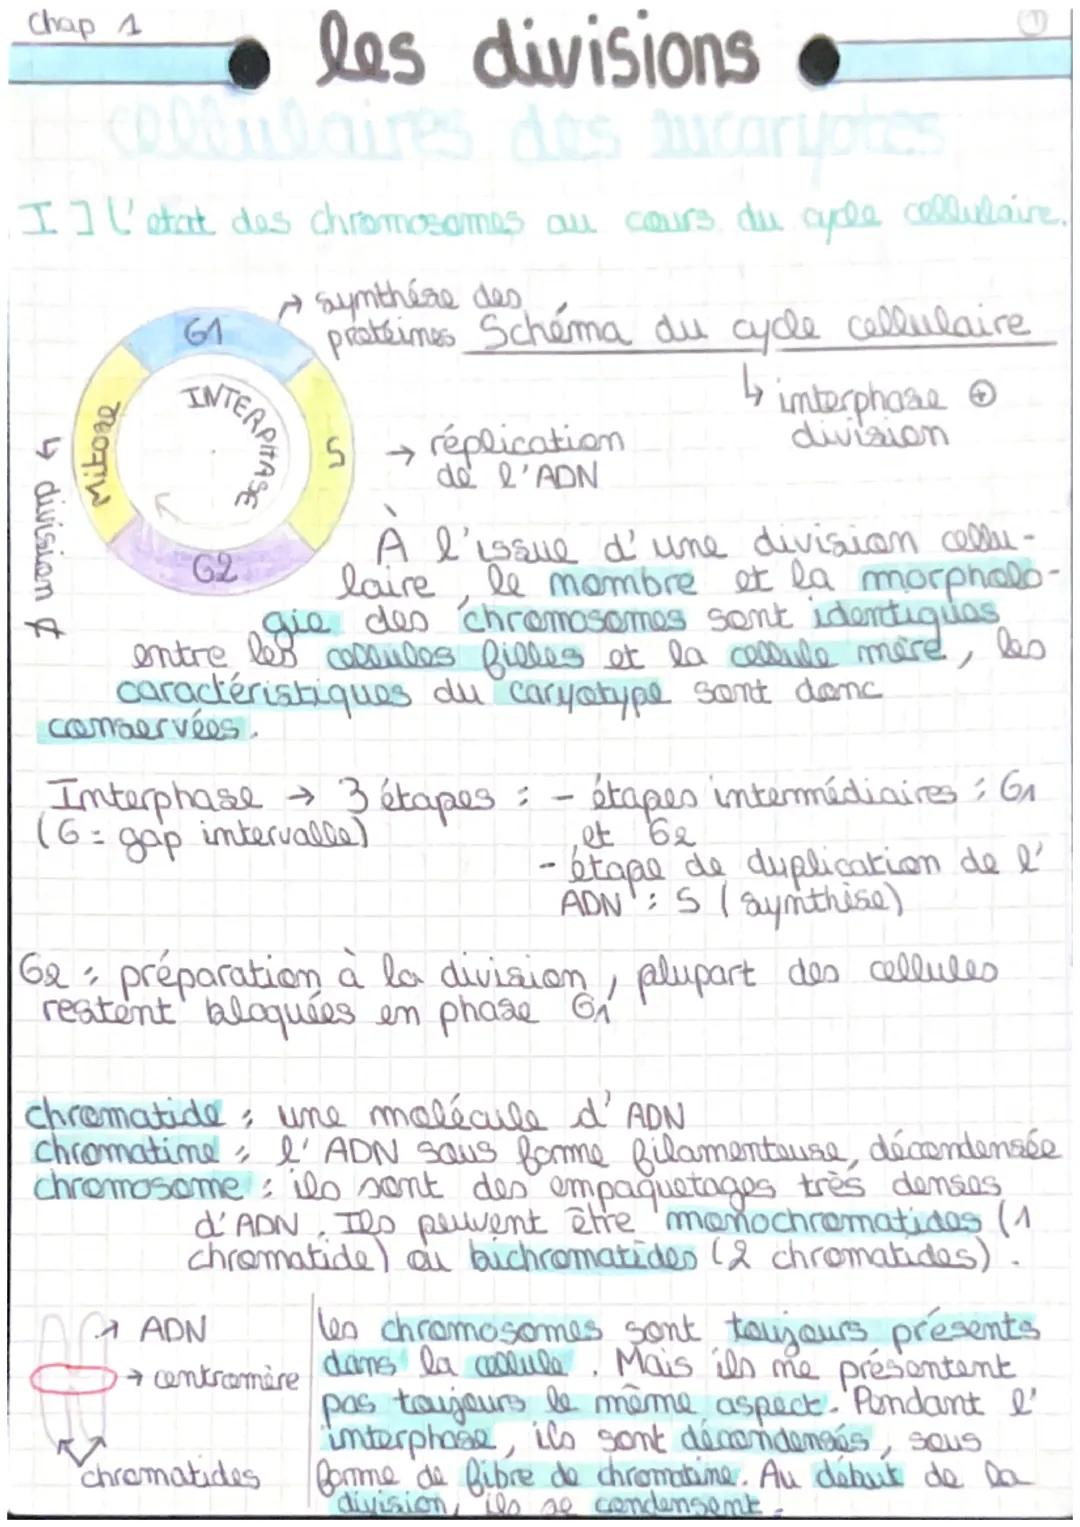 Chap 1
1
les divisions
cellulaires des eucaryotes
I] L'etat des chromosomes au cours du cycle cellulaire.
→ synthèse des
protéines
Schéma du cycle cellulaire
↳ interphase ⊕
division
G1
INTERPHASE
Mitose
S
G2
→ réplication
de l'ADN
↳ division
À l'issue d'une division cellu-
laire, le nombre et la morpholo-
gie des chromosomes sont identiques
entre les cellules filles et la cellule mère, les
caractéristiques du caryotype sont donc
conservées.
Interphase → 3 étapes : - étapes intermédiaires : G1
(G = gap intervalle) et G2
- étape de duplication de l'
ADN : S (synthèse)
G2 : préparation à la division, plupart des cellules
restent bloquées en phase G1
chromatide : une molécule d'ADN
chromatine : l'ADN sous forme filamenteuse, décondensée
chromosome : ils sont des empaquetages très denses
d'ADN. Ils peuvent être monochromatides (1
chromatide) ou bichromatides (2 chromatides).
→ ADN
→ centromère
chromatides
les chromosomes sont toujours présents
dans la cellule. Mais ils ne présentent
pas toujours le même aspect. Pendant l'
interphase, ils sont décondensés, sous
forme de fibre de chromatine. Au début de la
division, ils se condensent.